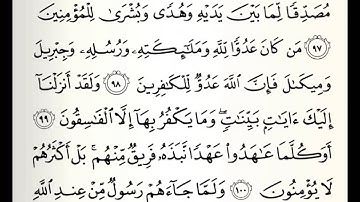 مُصَدِّقًا لِّمَا بَيْنَ يَدَيْهِ وَهُدًى وَبُشْرَىٰ لِلْمُؤْمِنِينَ
﴿٩٧﴾ مَن كَانَ عَدُوًّا لِّلَّهِ وَمَلَـٰٓئِكَتِهِۦ وَرُسُلِهِۦ وَجِبْرِيلَ
وَمِيكَىٰلَ فَإِنَّ ٱللَّهَ عَدُوٌّ لِّلْكَـٰفِرِينَ ﴿٩٨﴾ وَلَقَدْ أَنزَلْنَآ
إِلَيْكَ ءَايَـٰتٍۭ بَيِّنَـٰتٍ ۖ وَمَا يَكْفُرُ بِهَآ إِلَّا ٱلْفَـٰسِقُونَ ﴿٩٩﴾
أَوَكُلَّمَا عَـٰهَدُوا۟ عَهْدًا نَّبَذَهُۥ فَرِيقٌ مِّنْهُم ۚ بَلْ أَكْثَرُهُمْ
لَا يُؤْمِنُونَ ﴿١٠٠﴾ وَلَمَّا جَآءَهُمْ رَسُولٌ مِّنْ عِندِ ٱللَّهِ